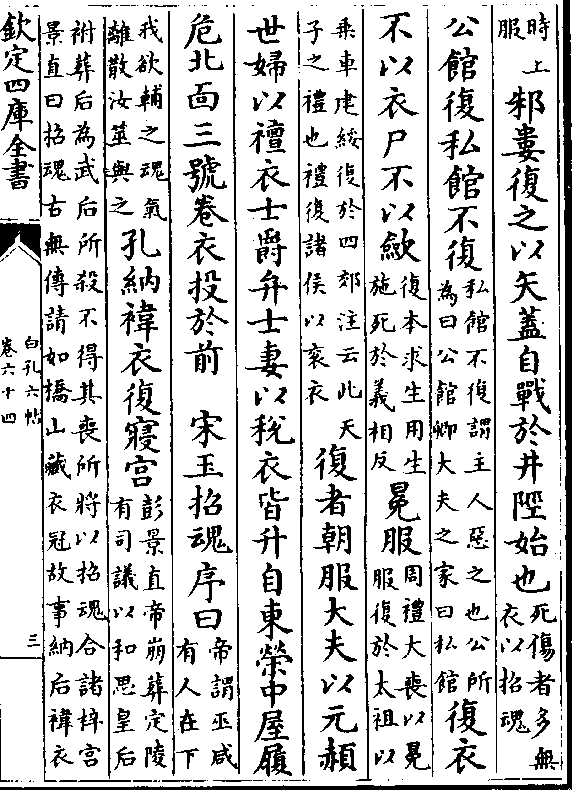 時上
服
邾婁復之以矢蓋自戰於井陘始也
死傷者多無
衣以招魂
公館復私館不復
私館不復謂主人惡之也公所
為曰公館卿大夫之家曰私館
復衣
不以衣尸不以斂
復本求生用生
施死於義相反
冕服
周禮大喪以冕
服復於太祖以
乘車建綏復於四郊注云此天
子之禮也禮復諸侯以衮衣
復者朝服大夫以元赬
世婦以襢衣士爵弁士妻以稅衣皆升自東榮中屋履
危北面三號卷衣投於前
宋玉招魂序曰
帝謂巫咸
有人在下
我欲輔之魂氣
離散汝筮與之
孔納褘衣復寢宮
彭景直帝崩葬定陵
有司議以和思皇后
祔葬后為武后所殺不得其喪所將以招魂合諸梓宮
景直曰招魂古無傳請如橋山藏衣冠故事納后褘衣
欽定四庫全書
白孔六帖
卷六十四
三